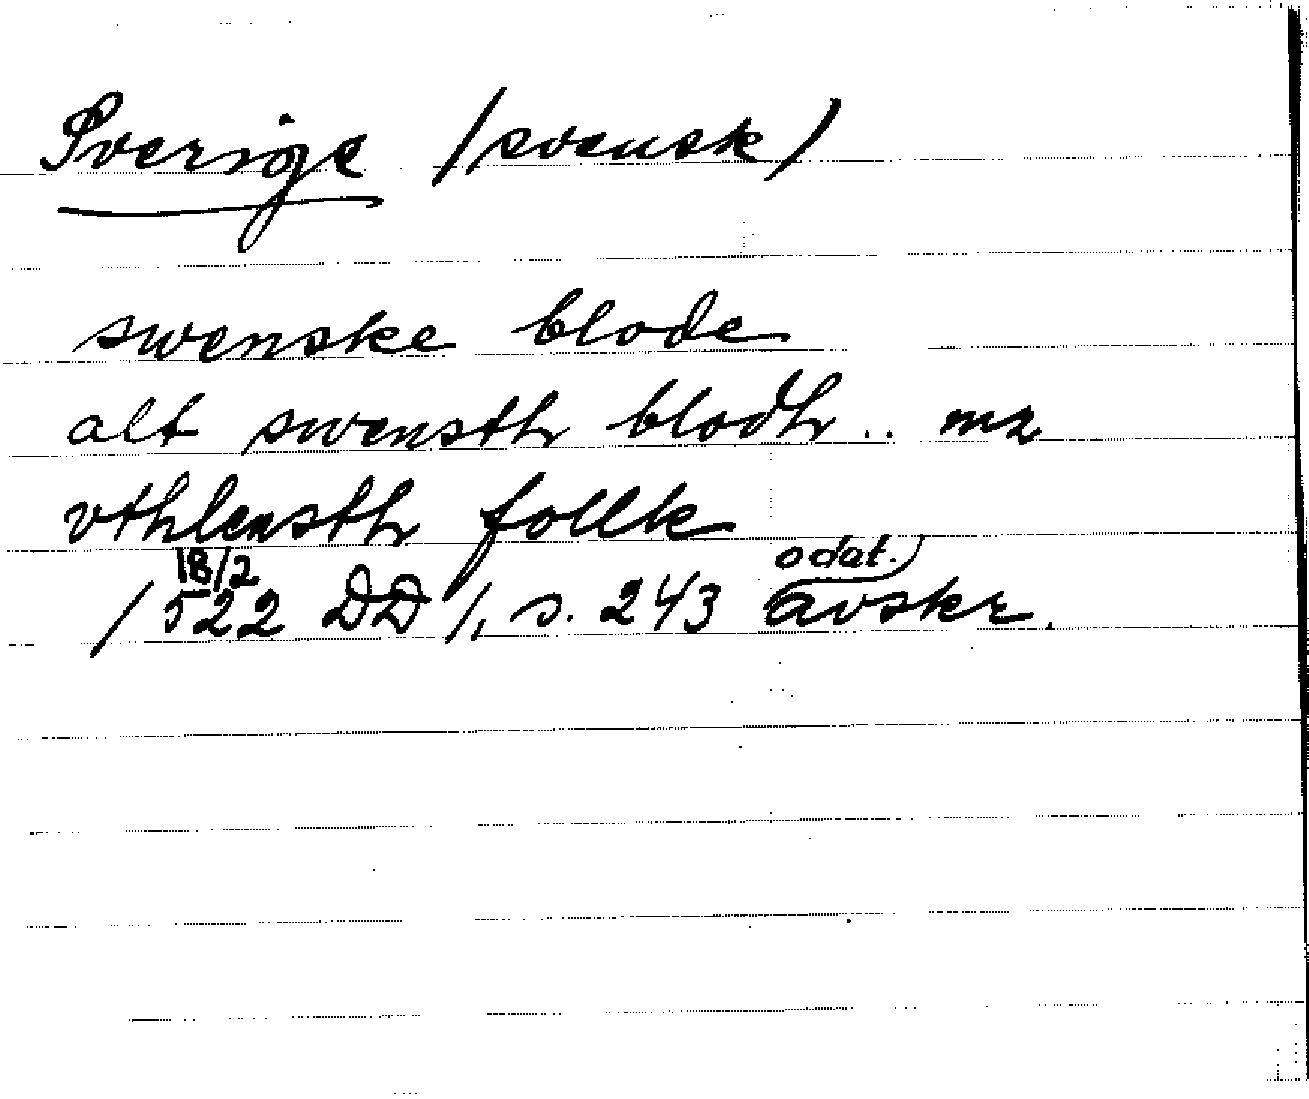 Sverige /svensk/
swenske blode
alt swensth blodh .. mz
vthlensth follk
18/2
odat.
/ 522 DD /, s. 243 avskr.